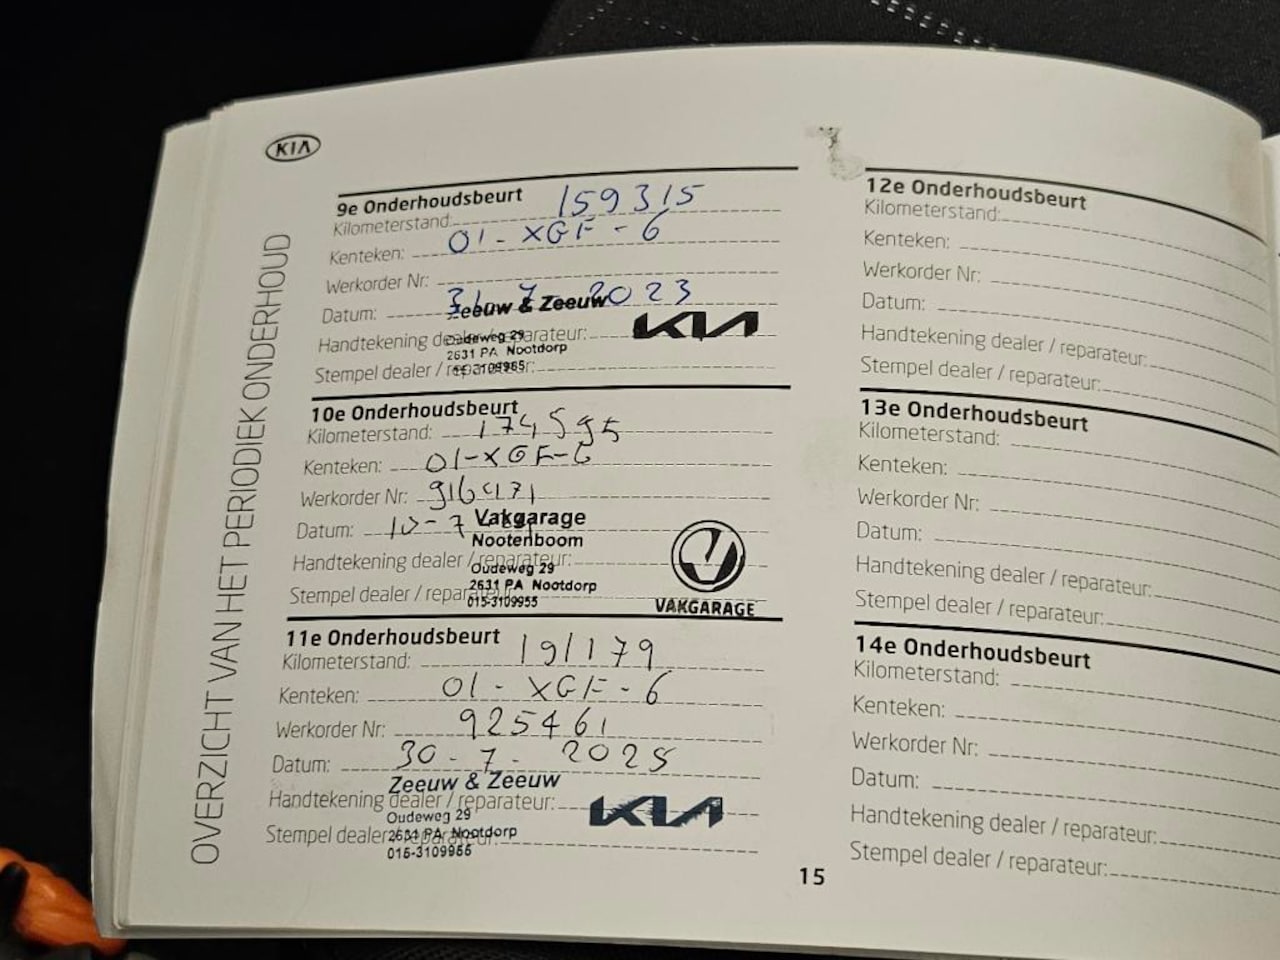 KIA
OVERZICHT VAN HET PERIODIEK ONDERHOUD
9e Onderhoudsbeurt
Kilometerstand: 159315
Kenteken: 01-XGF-6
Werkorder Nr:
Datum: 31 7 2023
Zeeuw & Zeeuw
KIA
Handtekening dealer / reparateur:
Oudeweg 29
2631 PA Nootdorp
Stempel dealer / reparateur:
015-3109955
10e Onderhoudsbeurt
Kilometerstand: 174595
Kenteken: 01-XGF-6
Werkorder Nr: 916471
Datum: 10-7
Vakgarage
Nootenboom
Handtekening dealer / reparateur:
Oudeweg 29
2631 PA Nootdorp
Stempel dealer / reparateur:
015-3109955
VAKGARAGE
11e Onderhoudsbeurt
Kilometerstand: 191179
Kenteken: 01-XGF-6
Werkorder Nr: 925461
Datum: 30-7-2025
Zeeuw & Zeeuw
KIA
Handtekening dealer / reparateur:
Oudeweg 29
2631 PA Nootdorp
Stempel dealer / reparateur:
015-3109955
15
12e Onderhoudsbeurt
Kilometerstand:
Kenteken:
Werkorder Nr:
Datum:
Handtekening dealer / reparateur:
Stempel dealer / reparateur:
13e Onderhoudsbeurt
Kilometerstand:
Kenteken:
Werkorder Nr:
Datum:
Handtekening dealer / reparateur:
Stempel dealer / reparateur:
14e Onderhoudsbeurt
Kilometerstand:
Kenteken:
Werkorder Nr:
Datum:
Handtekening dealer / reparateur:
Stempel dealer / reparateur: